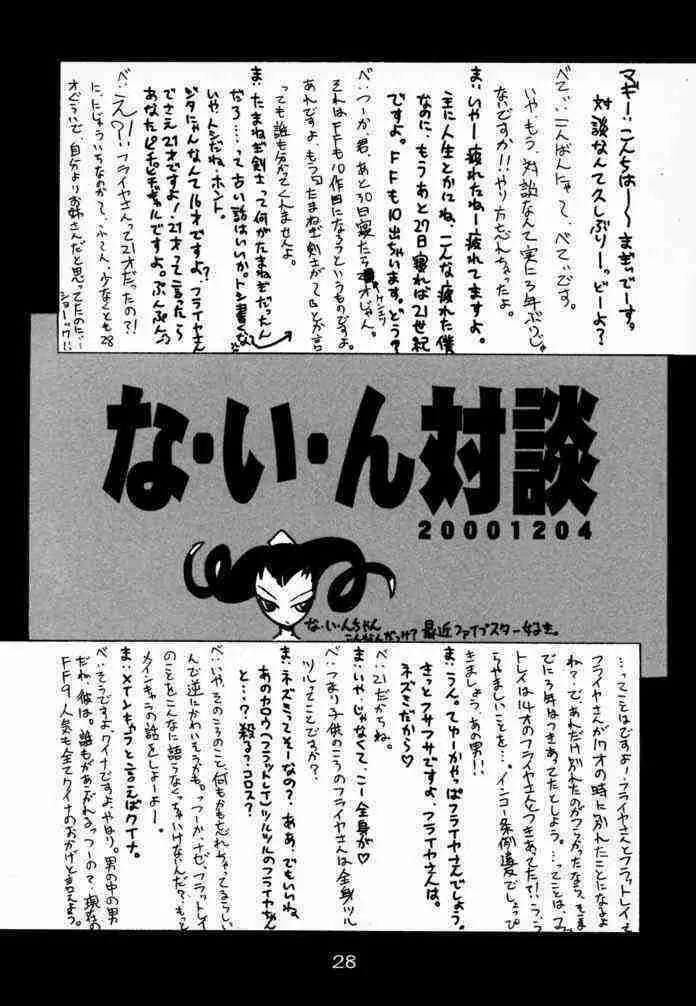 マギー：こんちは〜〜まぎぃでーす。
対談なんて久しぶりーっ。どーよ？
べてぃ：こんばんにゃて、べてぃです。
いや、もう、対談なんて実に3年ぶりじゃ
ないですか!!やり方忘れちゃったよ。
ま：いやー疲れたねー疲れてますよ。
主に人生とかにね、こんな疲れた僕
なのに、もうあと27日寝れば21世紀
ですよ。FFも10出ちゃいます。どう？
べ：つーか、君、あと30日寝たら オじゃん。
それはFFも10作目になろうというものですよ。
あれですよ、もう たまねぎ剣士がて とか言
っても誰も分かってくれませんよ。
ま：たまねぎ剣士って何がたまねぎだったん
だろ……って古い話はいいか。トシ書くな
いや、トシだね、ホント。
ジタにゃんなんて16才ですよ？フライヤさん
でさえ21才ですよ！21才って言ったら
あなたピチピチギャルですよ。ぷんぷん。
べ：え？！フライヤさんって21才だったの？！
に、にじゅういちなのかて、ふーん、少なくとも28
オぐらいで、自分よりお姉さんだと思ってたのに…
ショーック!!
な・い・ん対談
20001204
な・い・んちゃん
こんなんだっけ？最近ファイブスター好き。
…ってことはですよ！フライヤさんとフラットレイて
フライヤさんが17才の時に別れたことになるよ
ね？で、あれだけ別れたのがつらかったなら、そ ま
でに3年はつきあってたとしよう。…ってことは、フ
トレイは14才のフライヤさんとつきあってた？！う、う
らやましいことを…。インコー条例違反でしょっぴ
きましょう、あの男!!
ま：うん。てゆーかやっぱフライヤさんでしょう。
きっとフサフサですよ、フライヤさんは。
ネズミだから♡
べ：21だからね。
ま：いや、じゃなくて、こー全身が♡
べ：つまり子供のころのフライヤさんは全身ツル
ツルってことですか？
ま：ネズミってそーなの？ああ、でもいいね、
あのカロウ（フラットレイ）ツルツルのフライヤちゃん
と…？殺る？コロス？
べ：いや、そのころのこと、何もかも忘れちゃってるらしい
んで逆にかわいそうかも。っつーか、ナゼ、フラットレイ
のことをこんなに語らなくっちゃいけないんだ？もっと
メインキャラの話をしよーよー。
ま：メインキャラと言えばクイナ。
べ：そうですよ、クイナですよ、やはり。男の中の男
だね、彼は。誰もがあこがれるっつーの？現在の
FF9人気も全てクイナのおかげと言えよう。
28